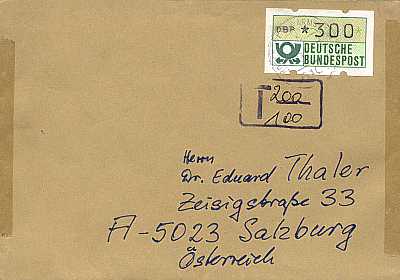 DBP *300
DEUTSCHE
BUNDESPOST
T 200
100
Herrn
Dr. Eduard Thaler
Zeisigstraße 33
A-5023 Salzburg
Österreich